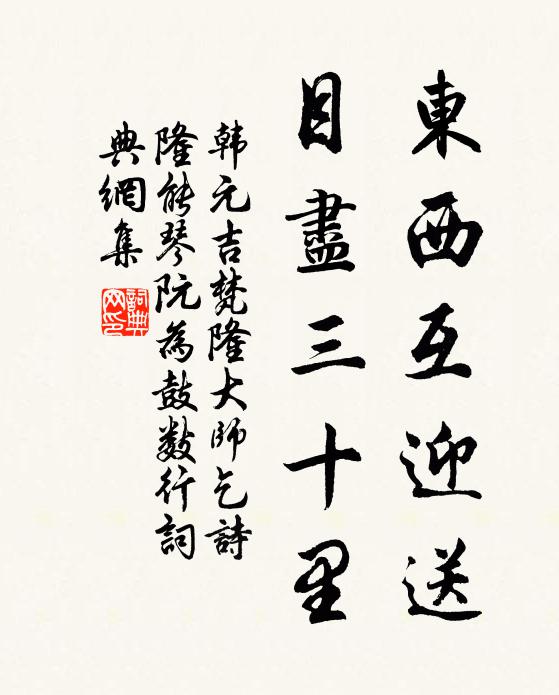 東西互迎送
目盡三十里
韩元吉梵隆大師乞詩
隆能琴阮為鼓数行詞
典網集
詞典网印